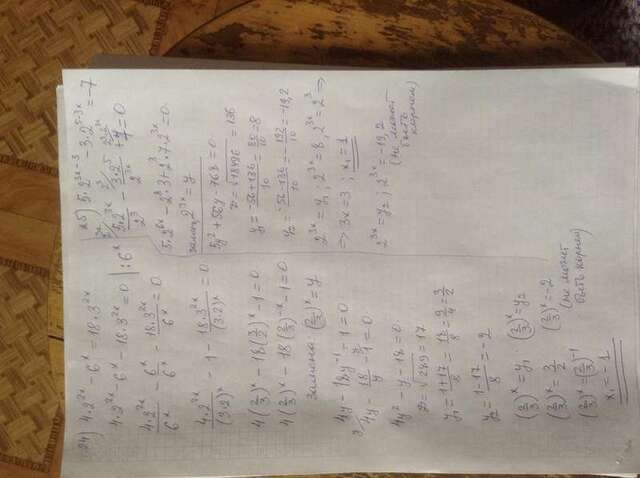 24) 4·2^2x - 6^x = 18·3^2x
4·2^2x - 6^x - 18·3^2x = 0 | :6^x
4·2^2x/6^x - 6^x/6^x - 18·3^2x/6^x = 0
4·2^2x/(3·2)^x - 1 - 18·3^2x/(3·2)^x = 0
4(2/3)^x - 18(3/2)^x - 1 = 0
4(2/3)^x - 18(2/3)^-x - 1 = 0
замена: (2/3)^x = y
4y - 18y^-1 - 1 = 0
4y - 18/y - 1 = 0
4y² - y - 18 = 0
D = √289 = 17
y₁ = 1+17/8 = 18/8 = 9/4
y₂ = 1-17/8 = -2
(2/3)^x = y₁ ; (2/3)^x = y₂
(2/3)^x = 3/2 (2/3)^x = -2
(2/3)^x = (2/3)^-1 (не может
быть корнем)
x₁ = -1
25) 5·2^3x-3 - 3·2^5-3x = -7
5·2^3x/2^3 - 3·2^5/2^3x + 7 = 0
5·2^6x - 2^8·3 + 7·2^3·2^3x = 0
замена 2^3x = y
5y² + 56y - 768 = 0
D = √18496 = 136
y₁ = -56+136/10 = 80/10 = 8
y₂ = -56-136/10 = -192/10 = -19,2
2^3x = y₁ ; 2^3x = 8 ; 2^3x = 2^3 ⇒
⇒ 3x = 3 ; x₁ = 1
2^3x = y₂ ; 2^3x = -19,2
(не может
быть
корнем)